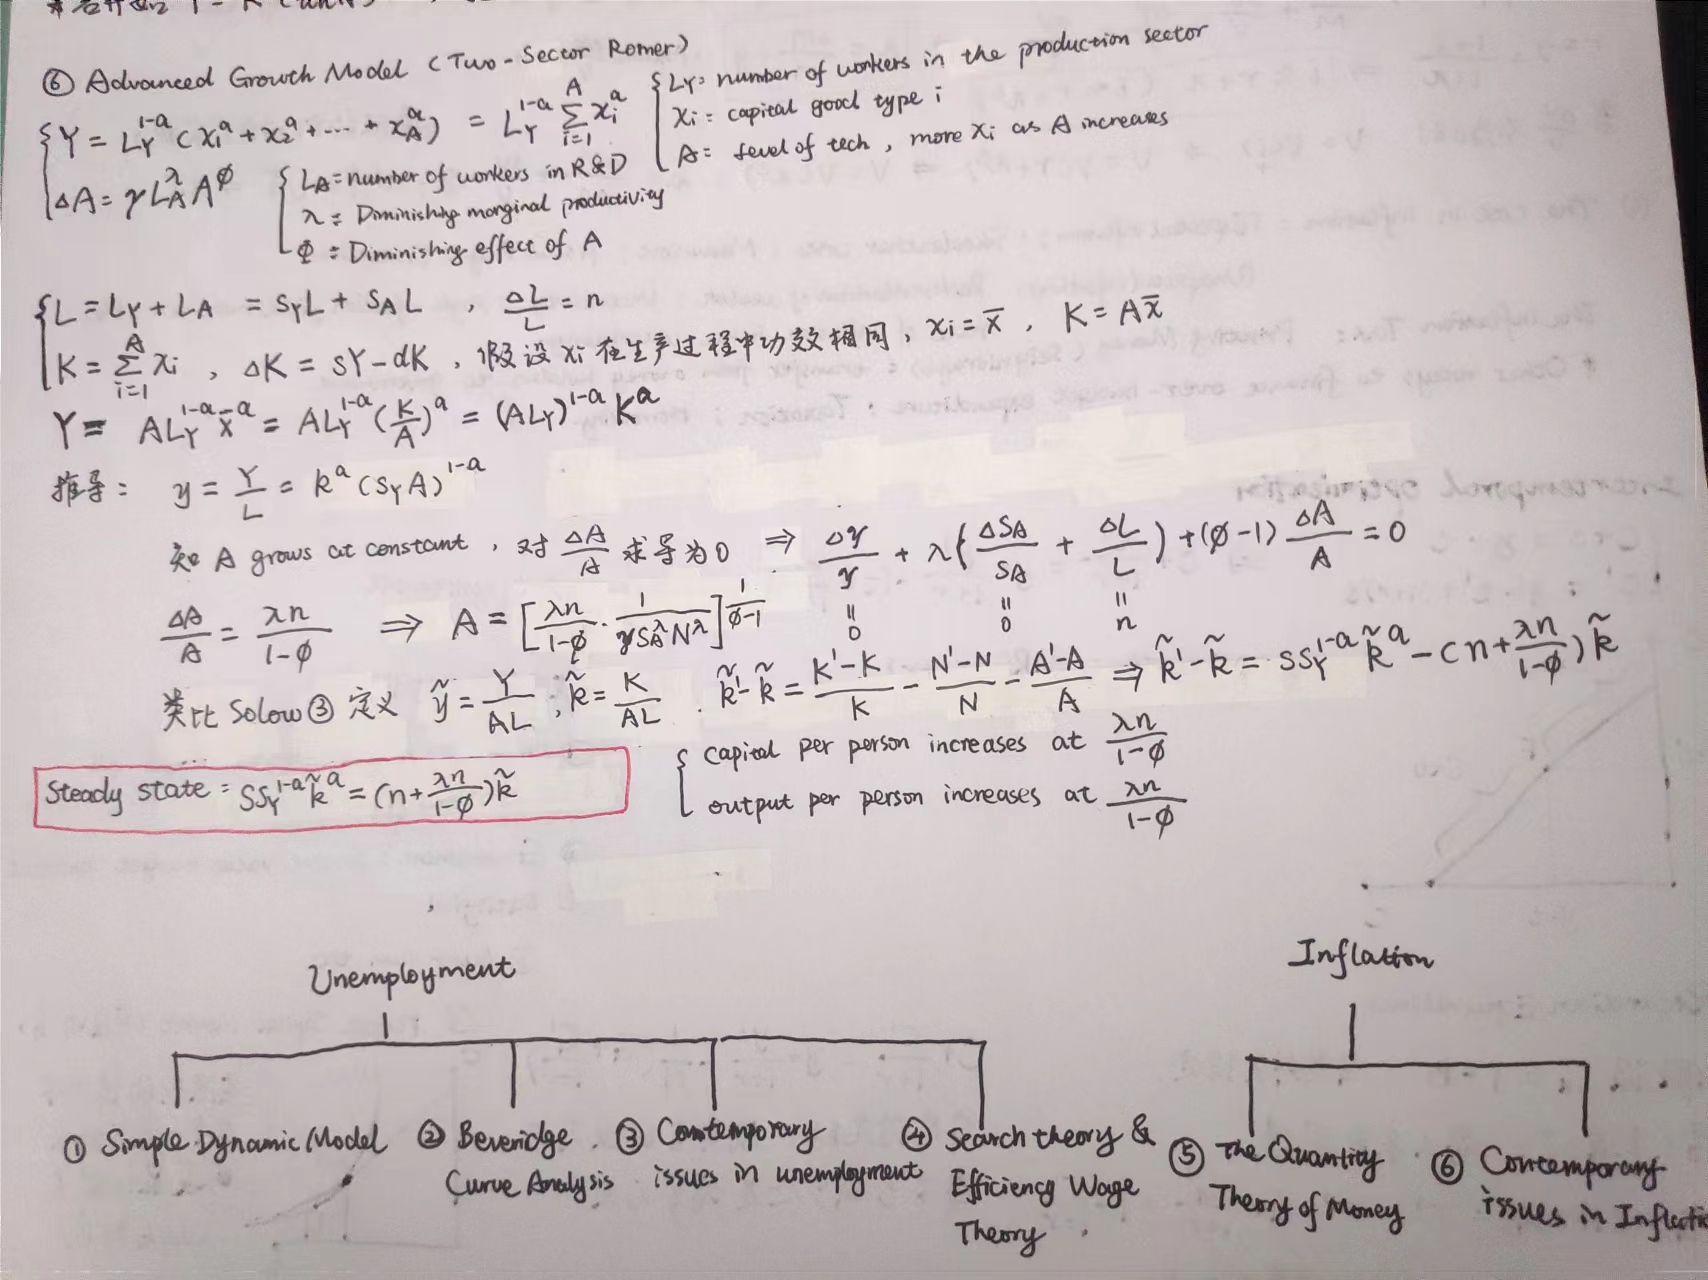 ⑥ Advanced Growth Model (Two-Sector Romer)
{ Y = L_Y^{1-a} (x_1^a + x_2^a + ... + x_A^a) = L_Y^{1-a} Σ_{i=1}^{A} x_i^a
ΔA = γ L_A^λ A^φ
{ L_Y: number of workers in the production sector
x_i: capital good type i
A = level of tech, more x_i as A increases
{ L_A = number of workers in R&D
λ = Diminishing marginal productivity
φ = Diminishing effect of A
{ L = L_Y + L_A = S_Y L + S_A L , ΔL/L = n
K = Σ_{i=1}^{A} x_i , ΔK = sY - dK , 假设 x_i 在生产过程中功效相同, x_i = x̄ , K = A x̄
Y = A L_Y^{1-a} x̄^a = A L_Y^{1-a} (K/A)^a = (A L_Y)^{1-a} K^a
推导: y = Y/L = k^a (S_Y A)^{1-a}
知 A grows at constant, 对 ΔA/A 求导为0 ⇒ Δγ/γ + λ(ΔS_A/S_A + ΔL/L) + (φ-1) ΔA/A = 0
= 0 = 0 = n
ΔA/A = λn/(1-φ) ⇒ A = [λn/(1-φ) · 1/(γ S_A^λ N^λ)]^{1/(φ-1)}
类比 Solow③ 定义 ỹ = Y/AL ; k̃ = K/AL . k̃' - k̃ = (K'-K)/K - (N'-N)/N - (A'-A)/A ⇒ k̃' - k̃ = S S_Y^{1-a} k̃^a - (n + λn/(1-φ)) k̃
Steady state: S S_Y^{1-a} k̃^a = (n + λn/(1-φ)) k̃
{ capital per person increases at λn/(1-φ)
output per person increases at λn/(1-φ)
Unemployment
① Simple Dynamic Model
② Beveridge
Curve Analysis
③ Contemporary
issues in unemployment
④ Search theory &
Efficiency Wage
Theory
Inflation
⑤ The Quantity
Theory of Money
⑥ Contemporary
issues in Inflati